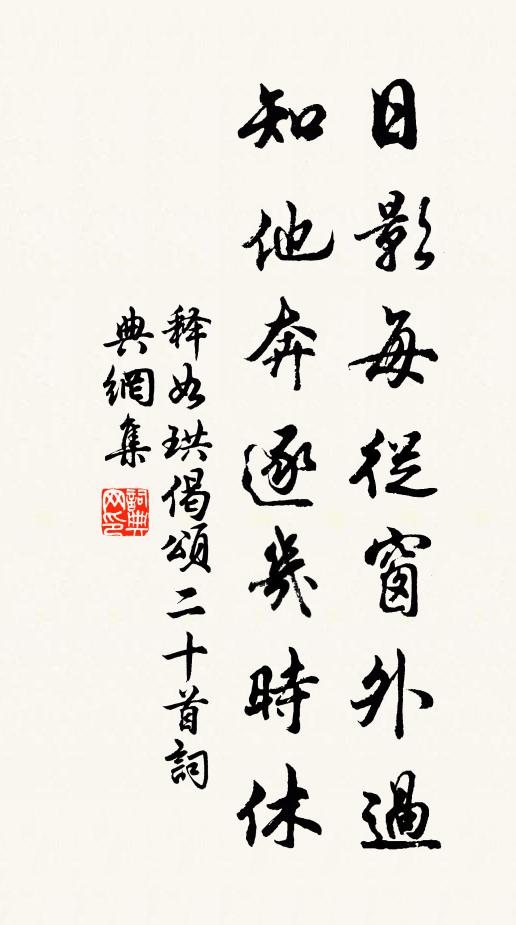 日影每從窗外過
知他奔逐幾時休
釋如珙偈頌二十首詞
典網集
詞典網印